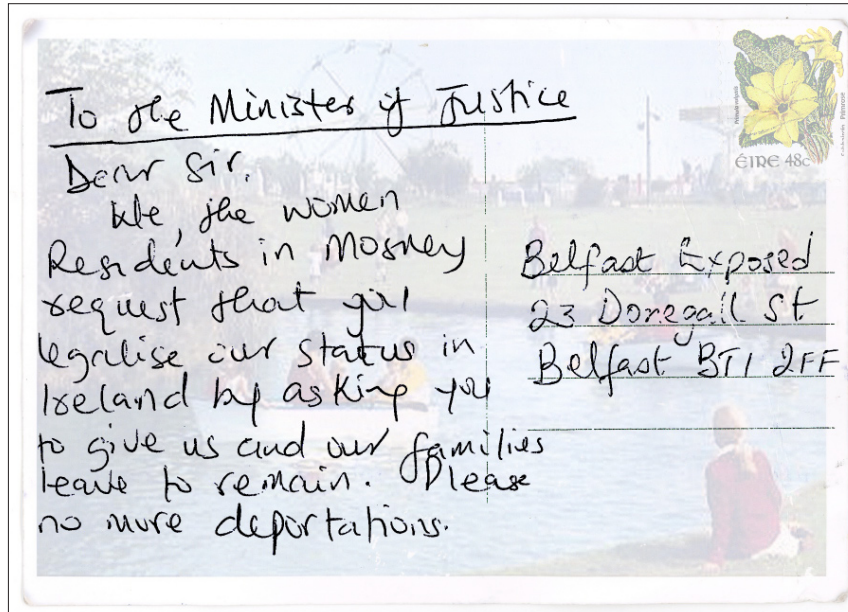 To the Minister of Justice
Dear Sir,
We, the women
Residents in Mosney
request that you
legalise our status in
Ireland by asking you
to give us and our families
leave to remain. Please
no more deportations.
ÉIRE 48c
Belfast Exposed
23 Donegall St
Belfast BT1 2FF